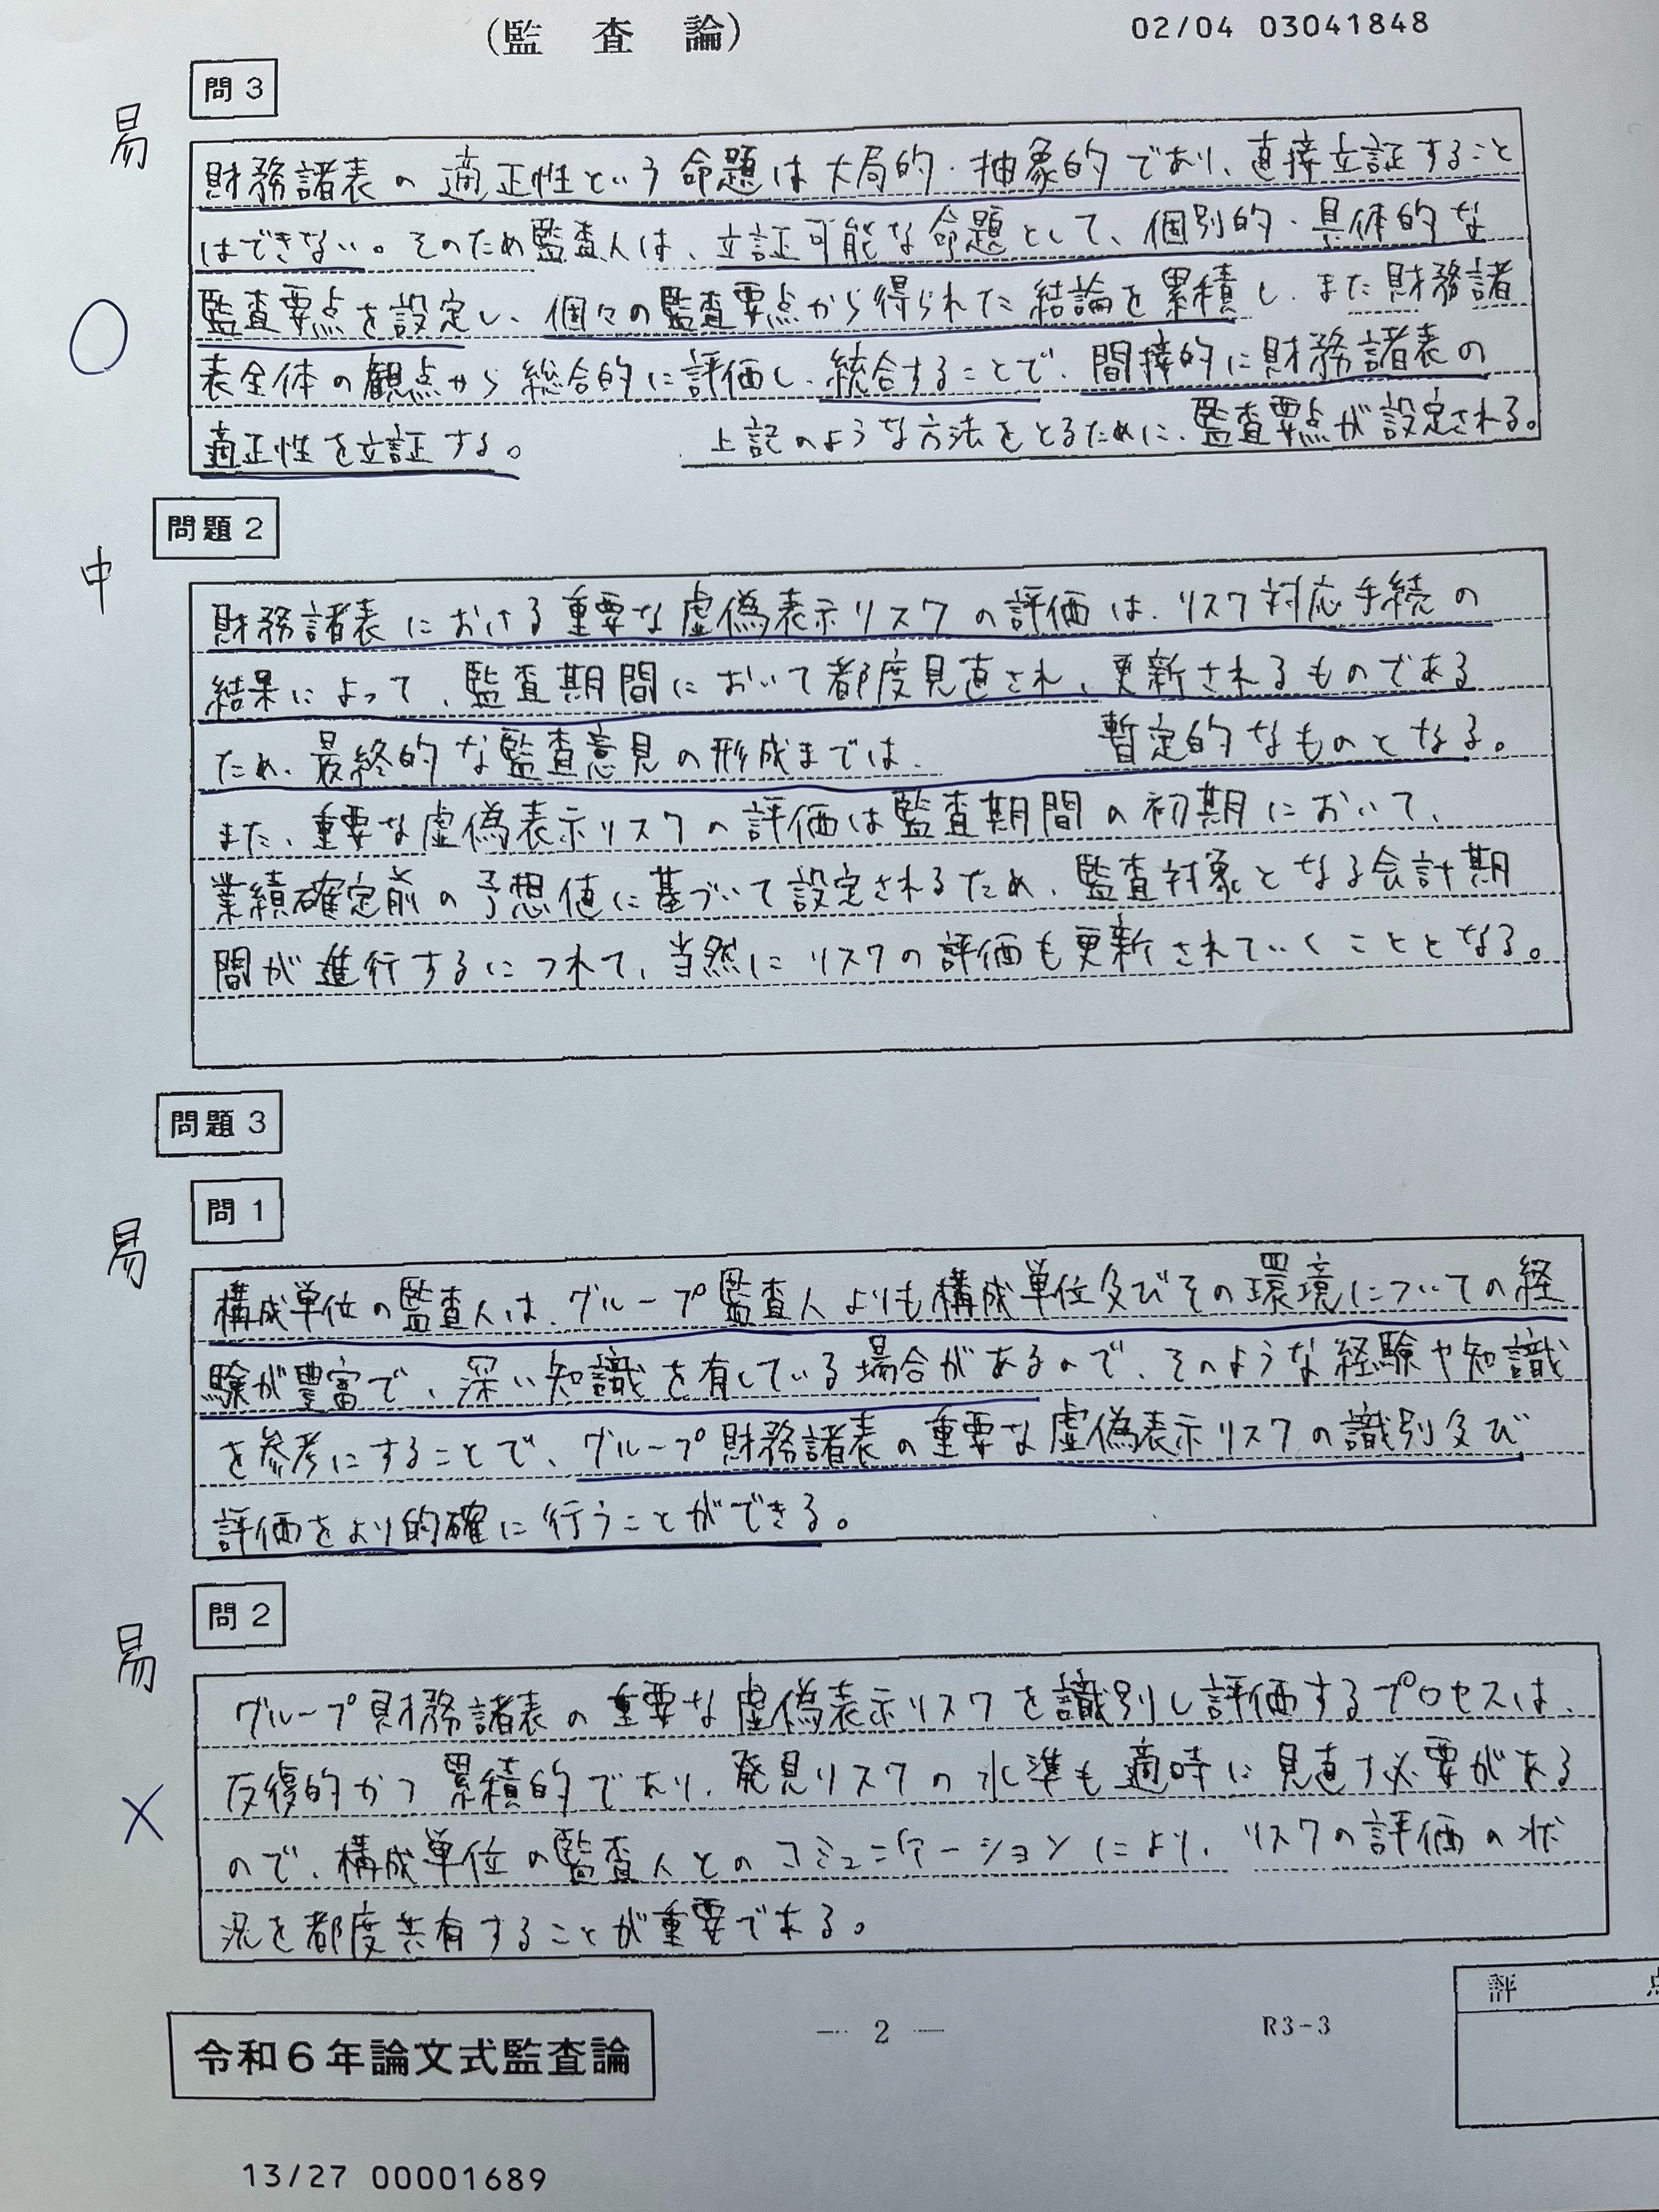 (監　査　論)
02/04 03041848
問3
易
財務諸表の適正性という命題は大局的・抽象的であり、直接立証すること
はできない。そのため監査人は、立証可能な命題として、個別的・具体的な
監査要点を設定し、個々の監査要点から得られた結論を累積し、また財務諸
○
表全体の観点から総合的に評価し、統合することで、間接的に財務諸表の
適正性を立証する。　上記のような方法をとるために、監査要点が設定される。
問題2
中
財務諸表における重要な虚偽表示リスクの評価は、リスク対応手続の
結果によって、監査期間において都度見直され、更新されるものである
ため、最終的な監査意見の形成までは、　暫定的なものとなる。
また、重要な虚偽表示リスクの評価は監査期間の初期において、
業績確定前の予想値に基づいて設定されるため、監査対象となる会計期
間が進行するにつれて、当然にリスクの評価も更新されていくこととなる。
問題3
問1
易
構成単位の監査人は、グループ監査人よりも構成単位及びその環境についての経
験が豊富で、深い知識を有している場合があるので、そのような経験や知識
を参考にすることで、グループ財務諸表の重要な虚偽表示リスクの識別及び
評価をより的確に行うことができる。
問2
易
グループ財務諸表の重要な虚偽表示リスクを識別し評価するプロセスは、
反復的かつ累積的であり、発見リスクの水準も適時に見直す必要がある
×
ので、構成単位の監査人とのコミュニケーションにより、リスクの評価の状
況を都度共有することが重要である。
評　点
令和6年論文式監査論
— 2 —
R3-3
13/27 00001689